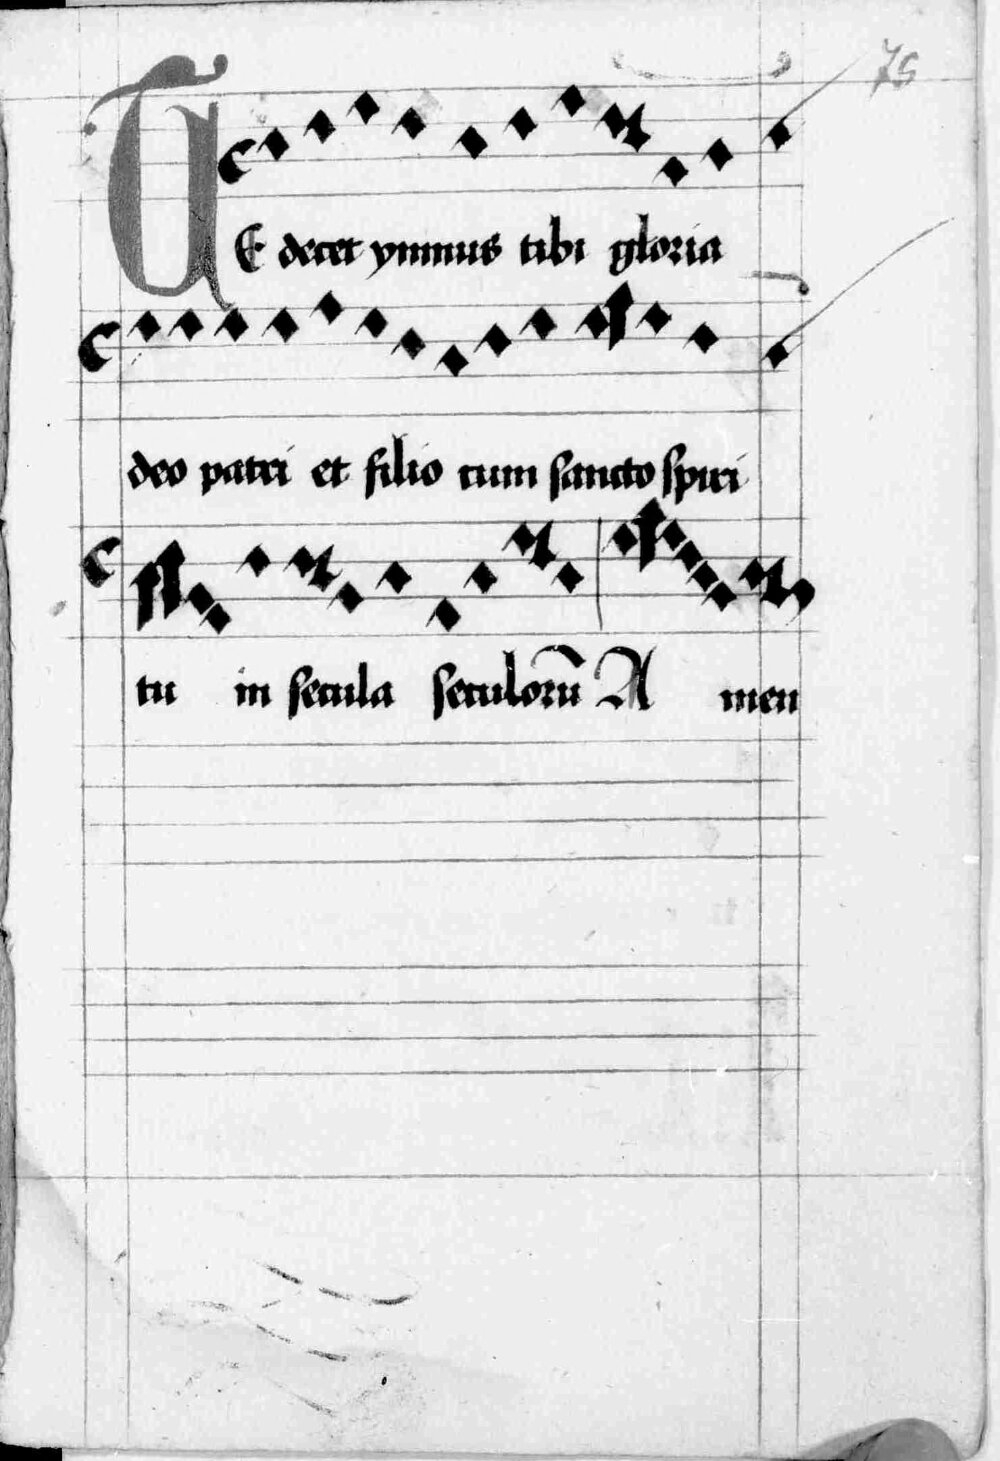 75
TE decet ymnus tibi gloria
deo patri et filio cum sancto spiri
tu in secula seculorū A men